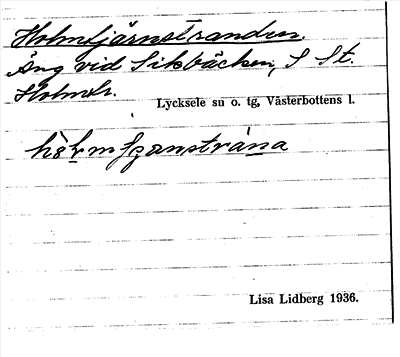 Holmtjärnstranden.
Äng vid Sikbäcken, S St.
Holmtr.
Lycksele sn o. tg, Västerbottens l.
Lisa Lidberg 1936.